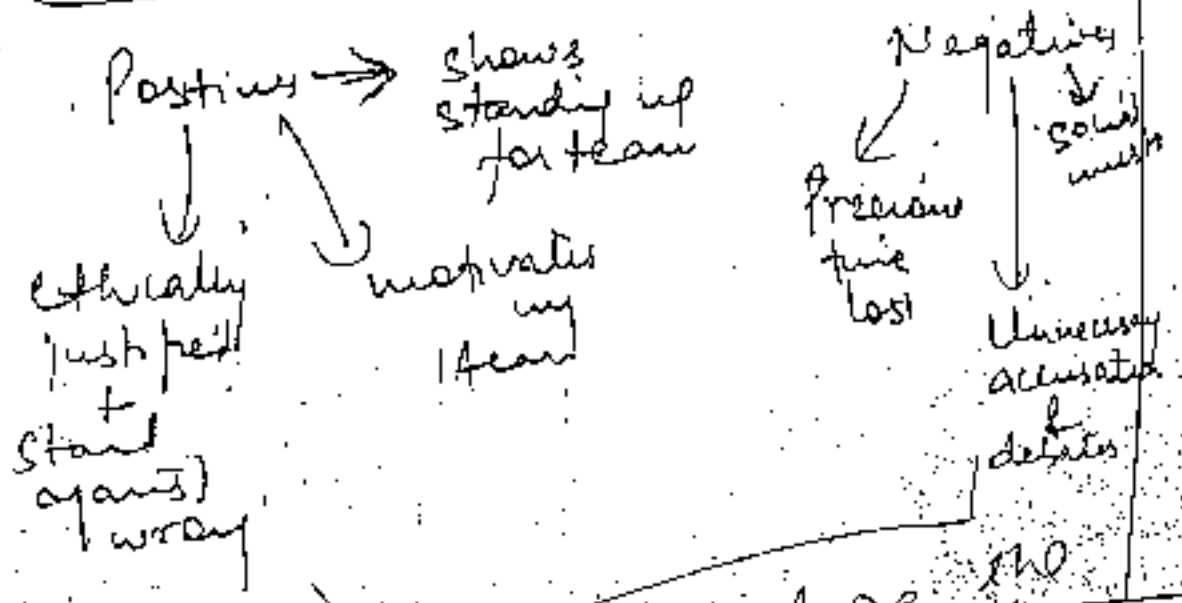 Positives → shows
standing up
for team
ethically
justified
+
stand
against
wrong
motivates
my
team
Negatives
Precious
time
lost
Unnecessary
accusation
&
debates
the